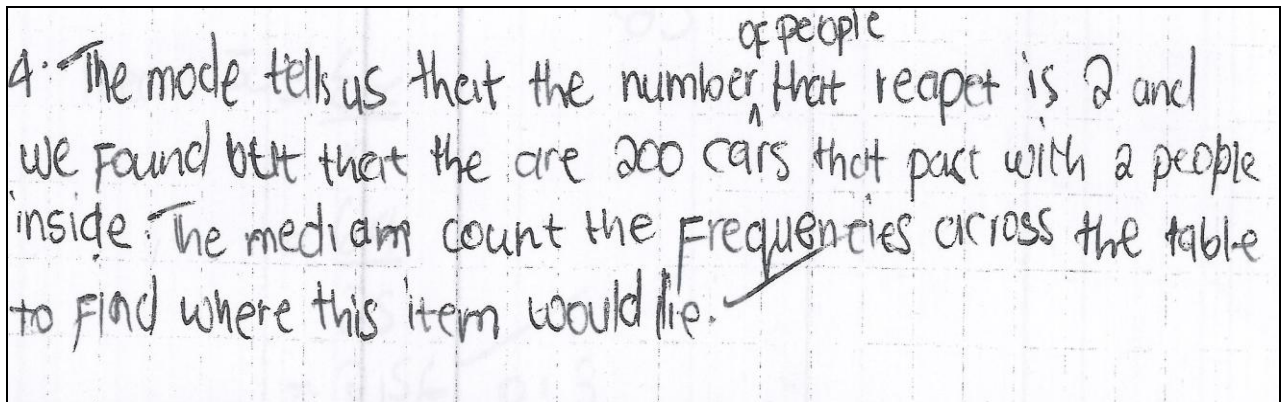 of people
4. The mode tells us that the number ^ that reapet is 2 and
we found out that the are 200 cars that past with 2 people
inside. The median count the frequencies across the table
to find where this item would lie.